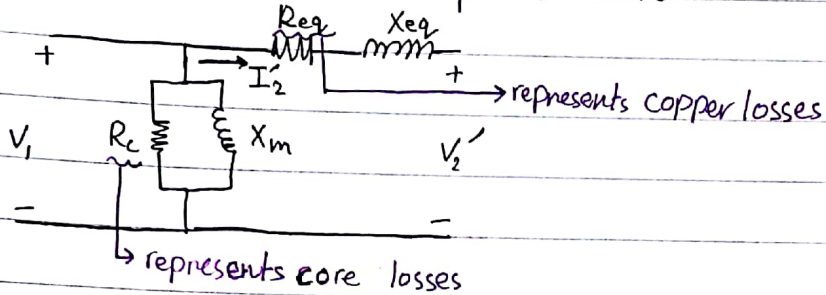 Req Xeq
+ I₂′ +
→ represents copper losses
V₁ Rc Xm V₂′
− −
↳ represents core losses